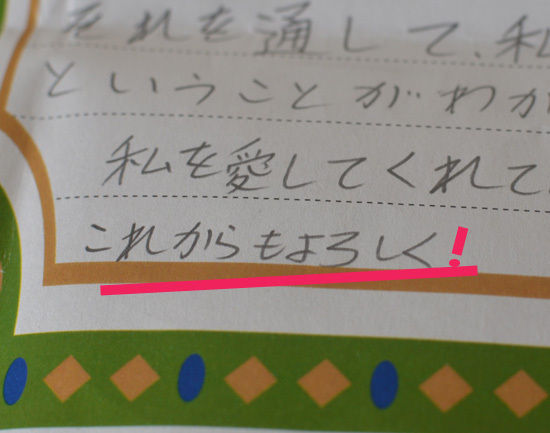 それを通して、私
ということがわか
私を愛してくれて
これからもよろしく!